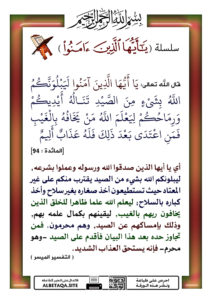 بسم الله الرحمن الرحيم
سلسلة ( يَـٰٓأَيُّهَا ٱلَّذِينَ ءَامَنُوا۟ )
قال الله تعالى: يَا أَيُّهَا الَّذِينَ آمَنُوا لَيَبْلُوَنَّكُمُ
اللهُ بِشَيْءٍ مِنَ الصَّيْدِ تَنَالُهُ أَيْدِيكُمْ
وَرِمَاحُكُمْ لِيَعْلَمَ اللهُ مَنْ يَخَافُهُ بِالْغَيْبِ
فَمَنِ اعْتَدَى بَعْدَ ذَلِكَ فَلَهُ عَذَابٌ أَلِيمٌ
[المائدة : 94]
أي يا أيها الذين صدقوا الله ورسوله وعملوا بشرعه،
ليبلونكم الله بشيء من الصيد يقترب منكم على غير
المعتاد حيث تستطيعون أخذ صغاره بغير سلاح وأخذ
كباره بالسلاح; ليعلم الله علما ظاهرا للخلق الذين
يخافون ربهم بالغيب، ليقينهم بكمال علمه بهم،
وذلك بإمساكهم عن الصيد، وهم محرمون. فمن
تجاوز حده بعد هذا البيان فأقدم على الصيد -وهو
محرم- فإنه يستحق العذاب الشديد.
( التفسير الميسر )
ALBETAQA.SITE